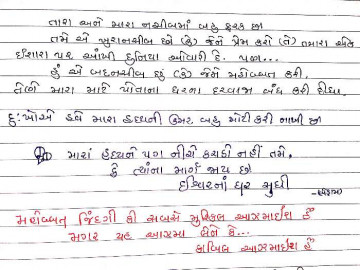 તારા અને મારા નસીબમાં બહુ ફરક છે
તમે એ ખુશનસીબ છો (કે) જેને પ્રેમ કરો (તે) તમારા એક
ઈશારા પર આખી દુનિયા આવારી દે. પણ...
હું એ બદનસીબ છું (કે) જેને મહોબ્બત કરી,
તેણે મારા માટે પોતાના ઘરના દરવાજા બંધ કરી દીધા.
દુ:ખોએ હવે મારા હૃદયની ઉંમર બહુ મોટી કરી નાખી છે
મારાં હૃદયને પણ નીચો કરશો નહીં તમે,
કે ત્યાંના માર્ગ જાય છે
ઈશ્વરનાં ઘર સુધી
મહોબ્બત જિંદગી કી સબસે મુશ્કિલ આઝમાઈશ હૈ
મગર યહ આઝમા લેને કે...
કાબિલ આઝમાઈશ હૈ